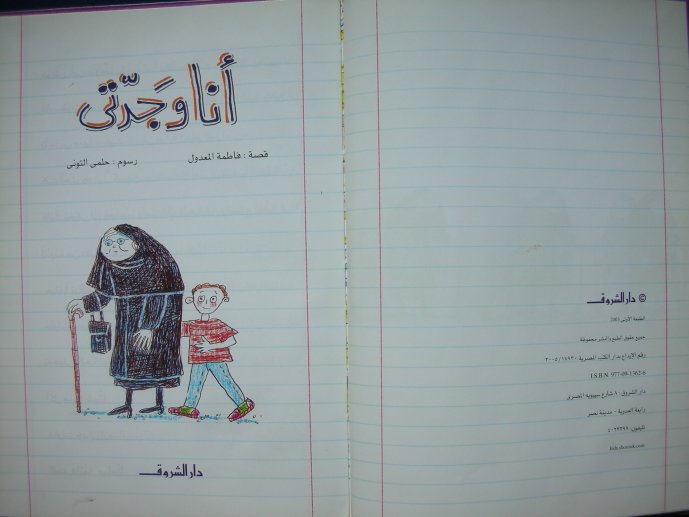 أنا وجدّتى
قصة : فاطمة المعدول
رسوم : حلمى التونى
دار الشروق
© دار الشروق
الطبعة الأولى 2005
جميع حقوق الطبع والنشر محفوظة
رقم الإيداع بدار الكتب المصرية ٢٠٠٥/١٧٩٣٠
I.S.B.N. 977-09-1362-6
دار الشروق: ٨ شارع سيبويه المصرى
رابعة العدوية - مدينة نصر
تليفون: ٤٠٢٣٣٩٩